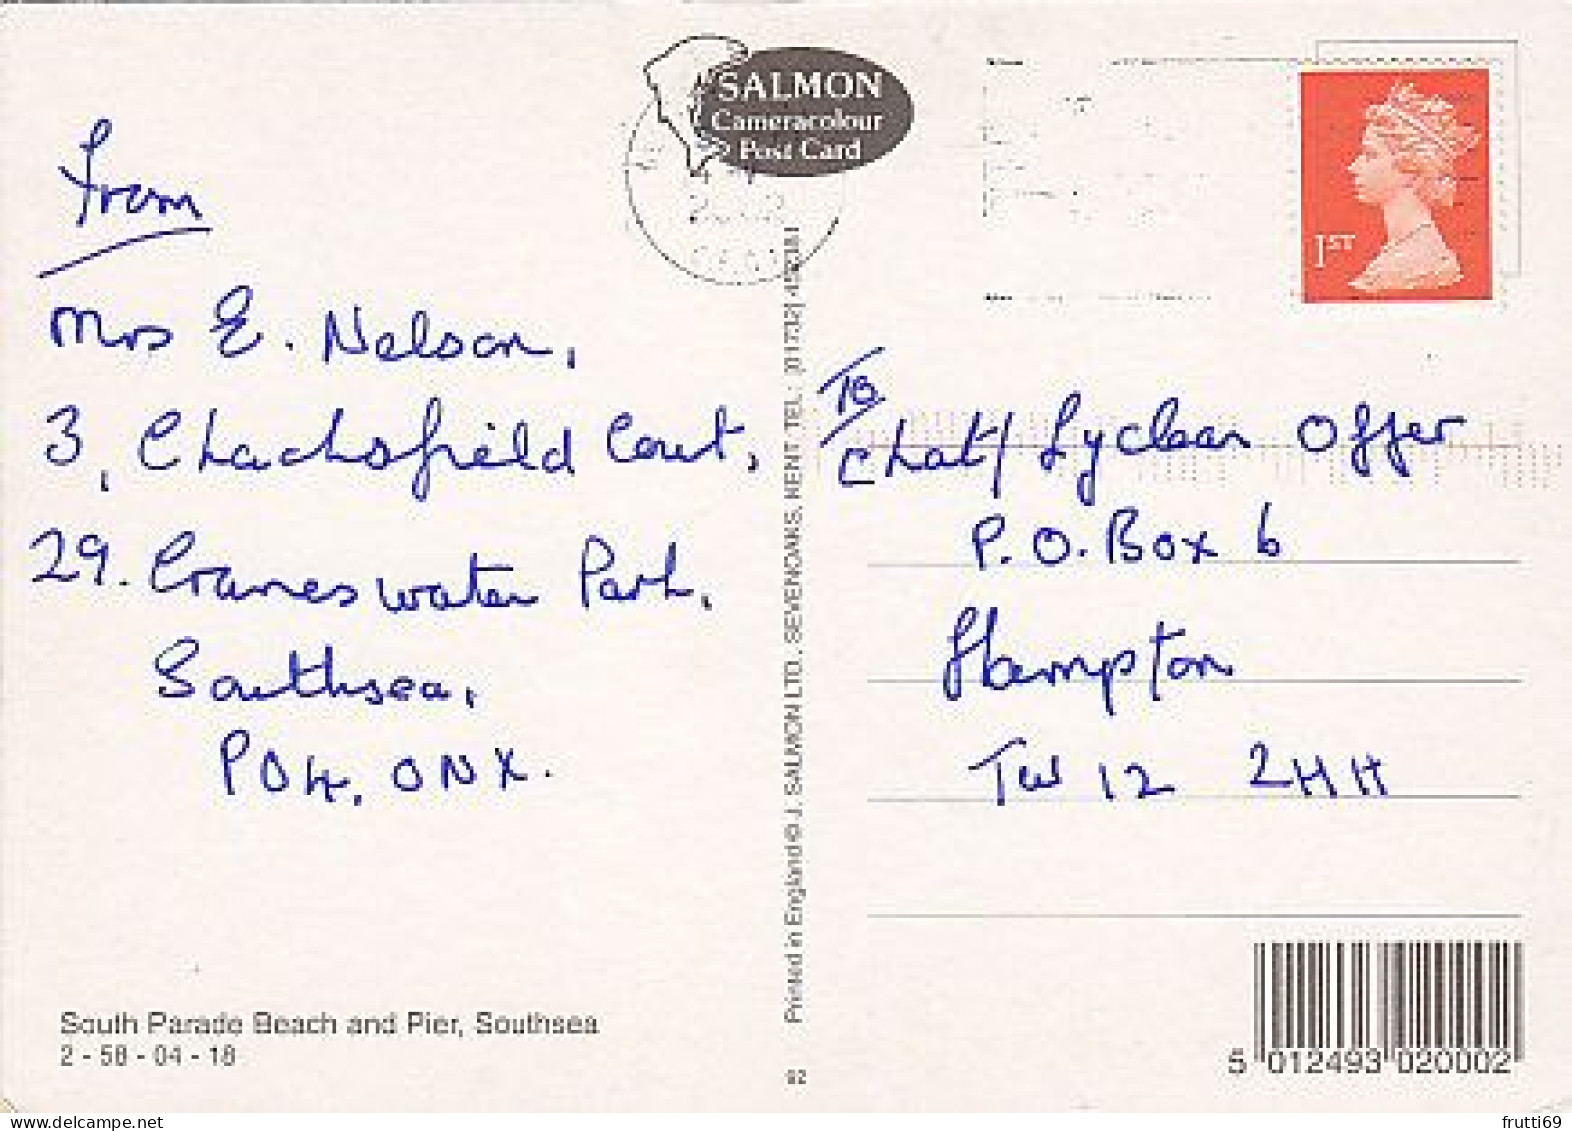 From
Mrs E. Nelson,
3, Chachsfield Court,
29. Craneswater Park,
Southsea,
PO4. ONX.
South Parade Beach and Pier, Southsea
2 - 58 - 04 - 18
SALMON
Cameracolour
Post Card
Printed in England © J. SALMON LTD., SEVENOAKS, KENT TEL:
92
1ST
To
Chat/ Lyclear Offer
P.O. Box 6
Hampton
TW 12 2HH
5 012493 020002
frutti69